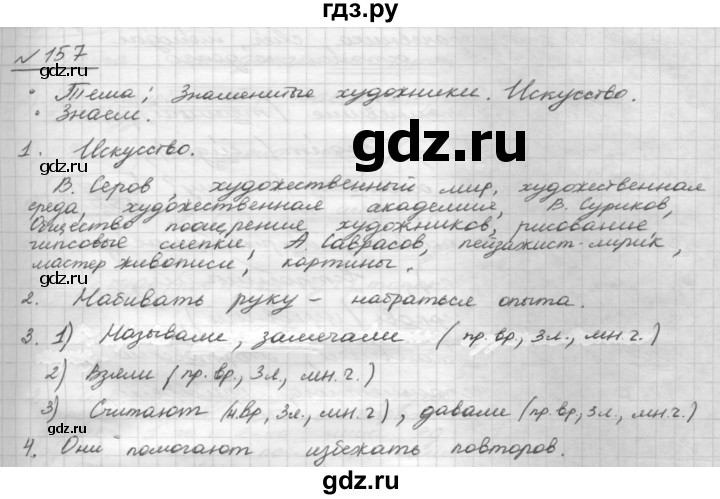 гдз.ру
№ 157
• Тема: Знаменитые художники. Искусство.
• Знаем.
gdz.ru
1. Искусство.
В. Серов, художественный мир, художественная
среда, художественная академия, В. Суриков,
Общество поощрение художников, рисование,
гипсовые слепки, А. Саврасов, пейзажист-лирик,
мастер живописи, картины.
gdz.ru
2. Набивать руку – набраться опыта.
3. 1) Называли, замечали (пр.вр., 3л., мн.ч.)
2) Взяли (пр.вр., 3л., мн.ч.)
gdz.ru
3) Считают (н.вр, 3л., мн.ч), давали (пр.вр., 3л., мн.ч.)
4. Они помогают избежать повторов.
gdz.ru